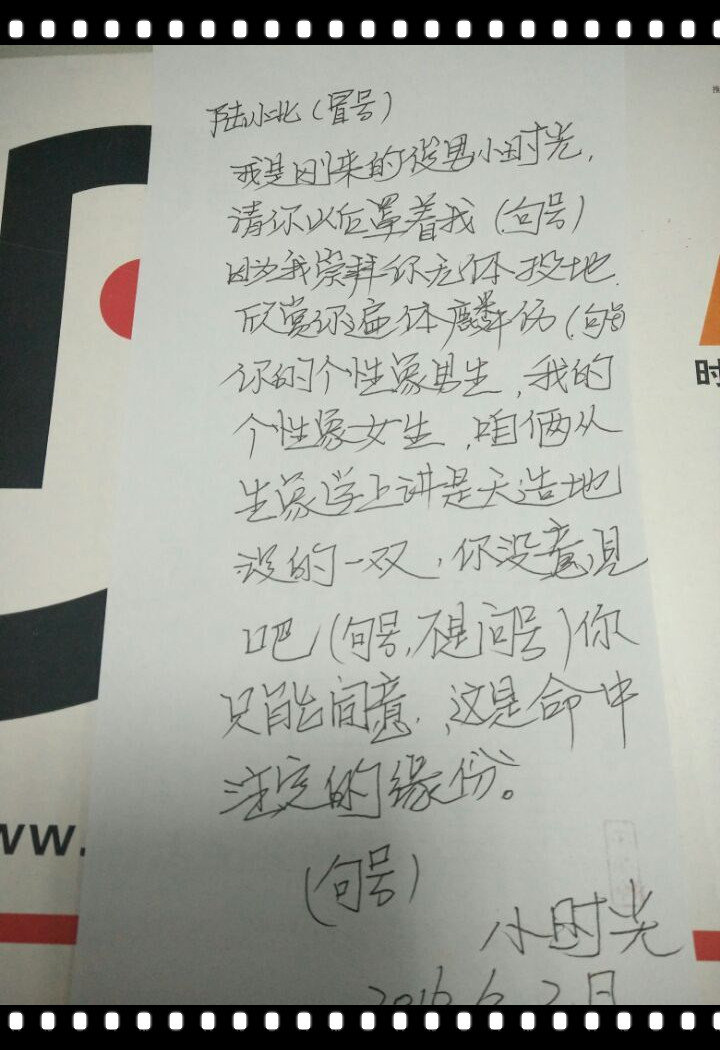 陆小北(冒号)
我是刚来的谈男小时光,
请你以后罩着我(句号)
因为我崇拜你五体投地.
欣赏你遍体鳞伤(句号
你的个性象男生,我的
个性象女生,咱俩从
生象学上讲是天造地
设的一双,你没意见
吧(句号,不是问号)你
只能同意.这是命中
注定的缘份。
(句号)
小时光
2016.6.2日
时
ww.